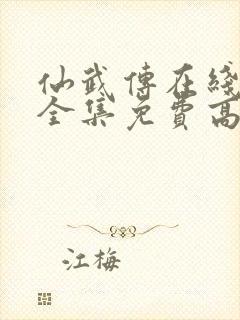 仙武傳在綫
全集免費高
江梅